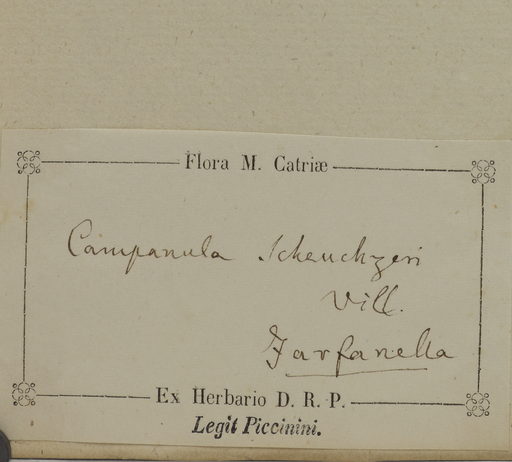 Flora M. Catriæ
Campanula Scheuchzeri
Vill.
Farfanella
Ex Herbario D. R. P.
Legit Piccinini.